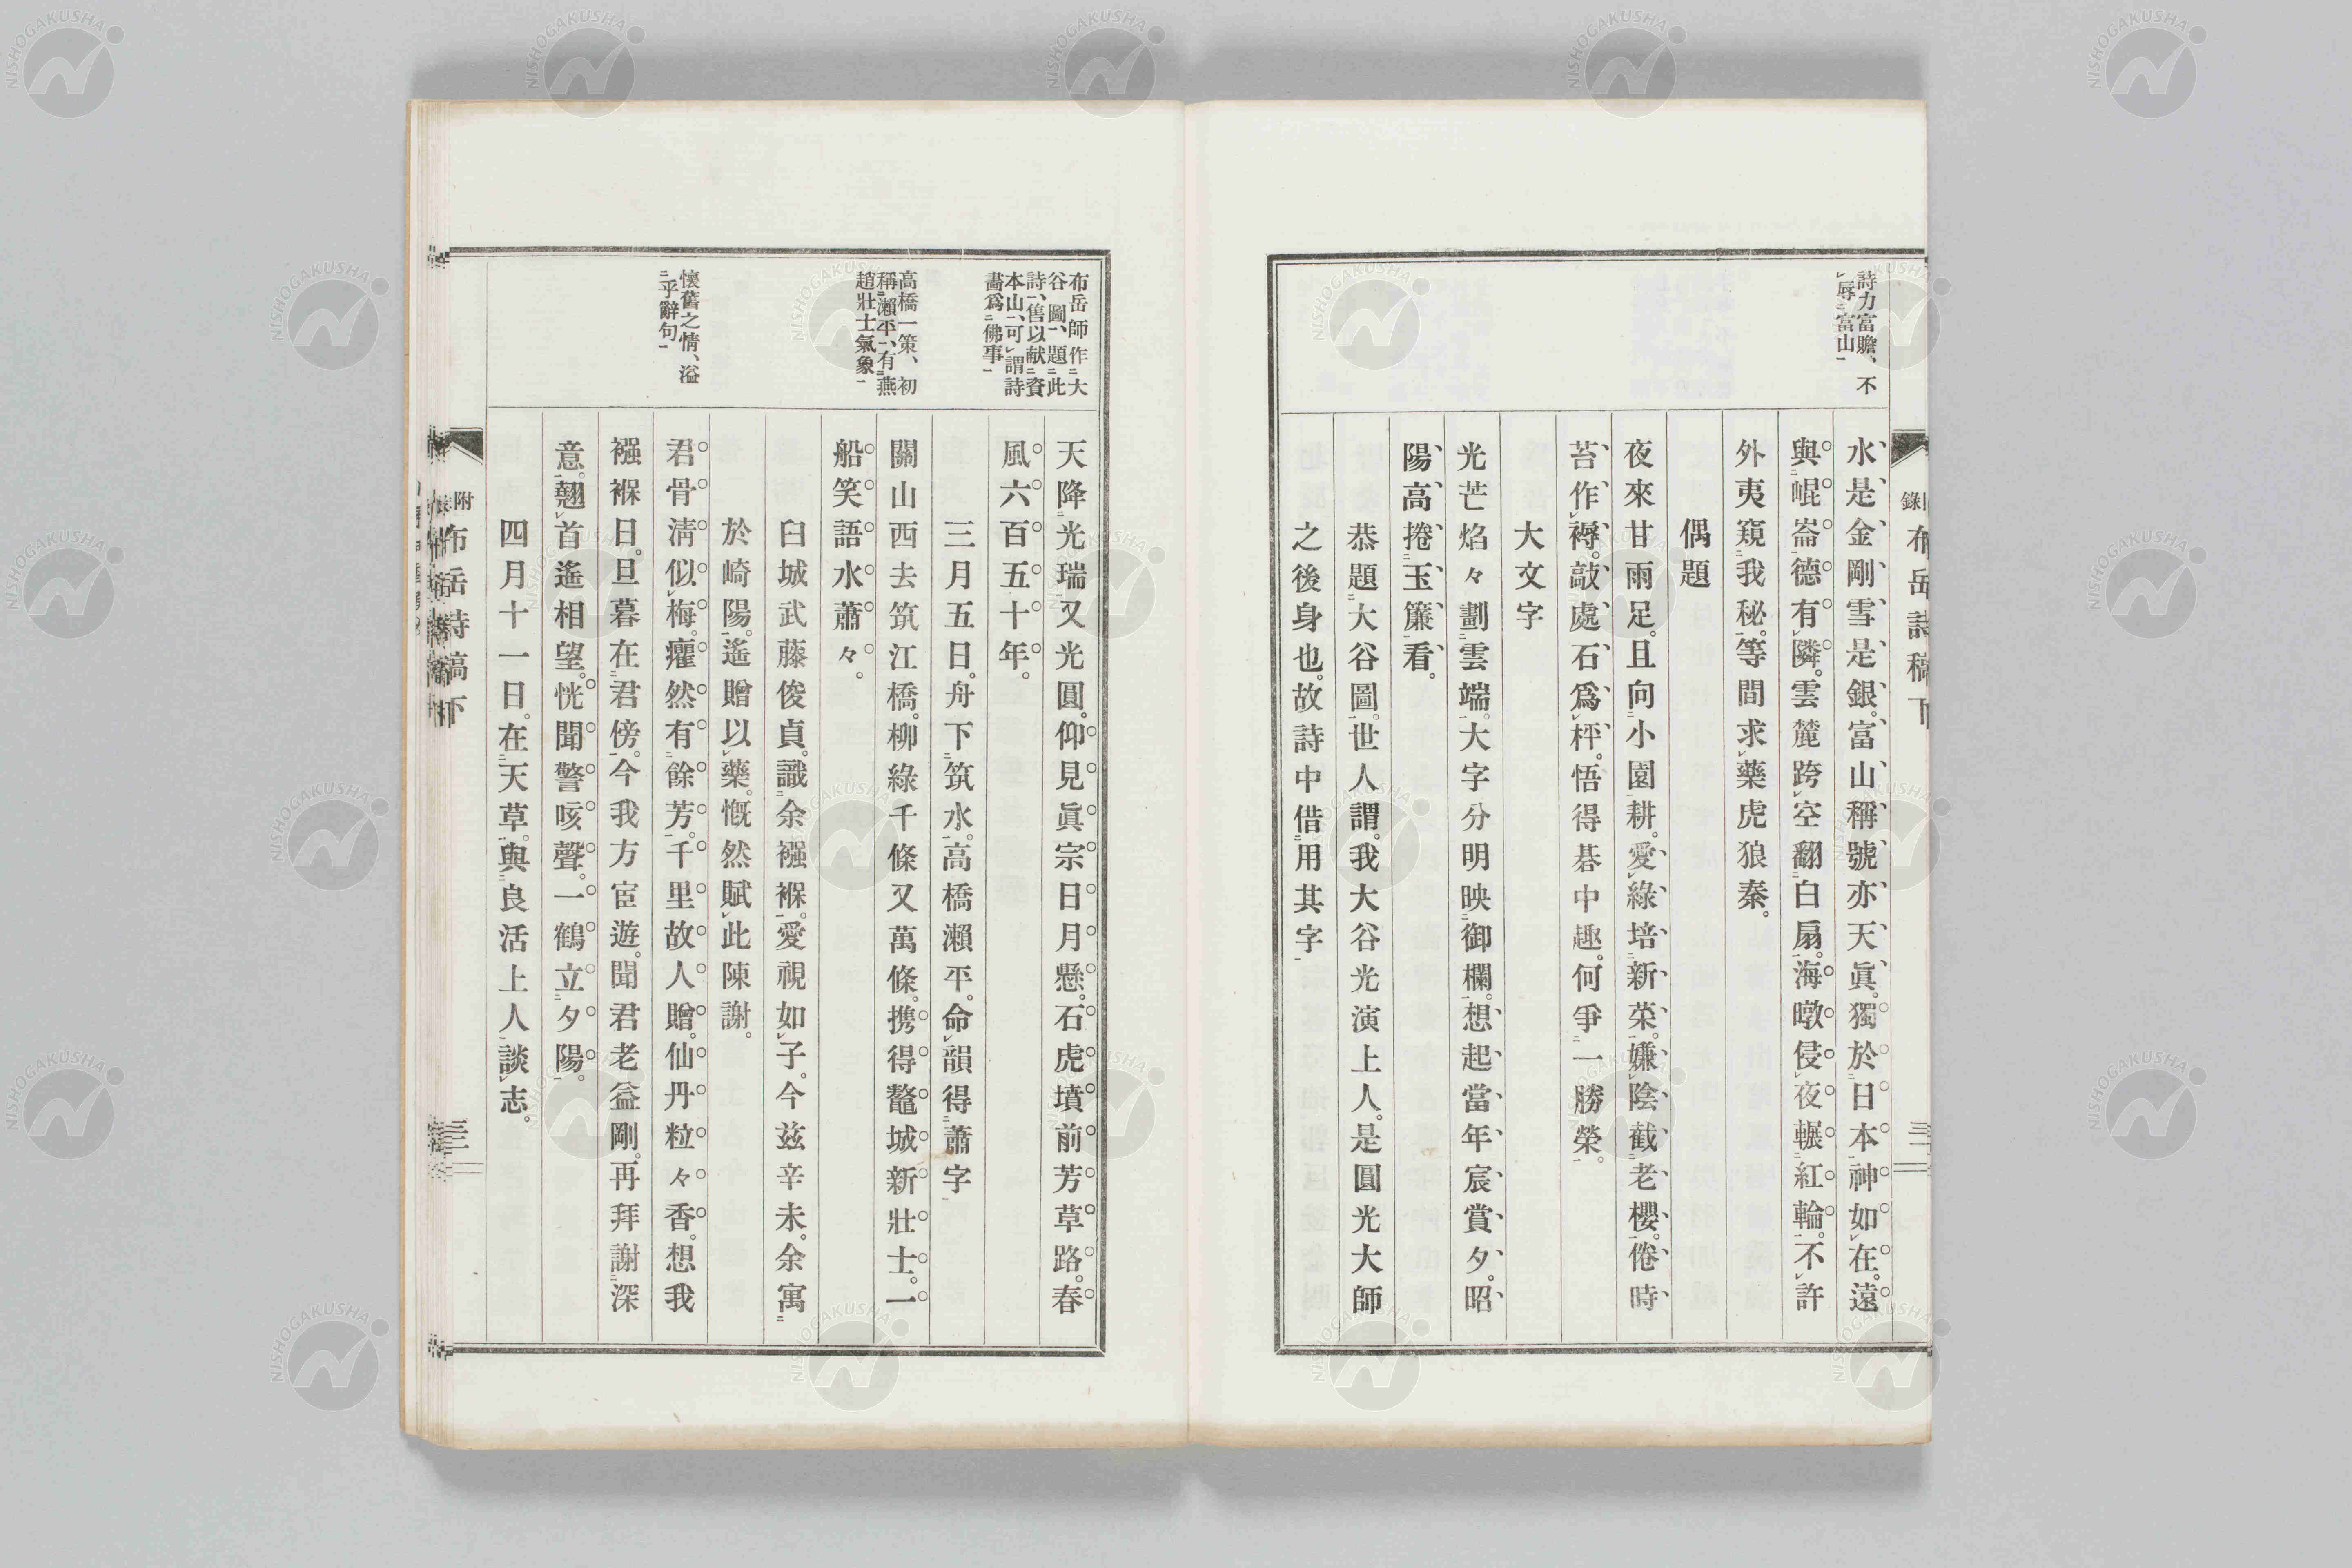 詩力富贍、不
辱富山
水是金剛雪是銀。富山稱號亦天眞。獨於日本神如在。遠
與崐崙德有隣。雲麓跨空翻白扇。海暾侵夜輾紅輪。不許
外夷窺我秘。等間求藥虎狼秦。
偶題
夜來甘雨足。且向小園耕。愛綠培新菜。嫌陰截老櫻。倦時
苔作褥。敲處石爲枰。悟得碁中趣。何爭一勝榮。
大文字
光芒焰々劃雲端。大字分明映御欄。想起當年宸賞夕。昭
陽高捲玉簾看。
恭題大谷圖。世人謂。我大谷光演上人。是圓光大師
之後身也。故詩中借用其字
布岳詩稿下
三
布岳師作大
谷圖、題此
詩、售以献資
本山、可謂詩
畵爲佛事
高橋一策、初
稱瀨平、有燕
趙壯士氣象
懷舊之情、溢
乎辭句
天降光瑞又光圓。仰見眞宗日月懸。石虎墳前芳草路。春
風六百五十年。
三月五日。舟下筑水。高橋瀨平。命韻得蕭字
關山西去筑江橋。柳綠千條又萬條。携得鼇城新壯士。一
船笑語水蕭々。
臼城武藤俊貞。識余襁褓。愛視如子。今玆辛未。余寓
於崎陽。遙贈以藥。慨然賦此陳謝。
君骨淸似梅。癯然有餘芳。千里故人贈。仙丹粒々香。想我
襁褓日。旦暮在君傍。今我方宦遊。聞君老益剛。再拜謝深
意。翹首遙相望。恍聞警咳聲。一鶴立夕陽。
四月十一日。在天草。與良活上人談志。
附
布岳詩稿下
三